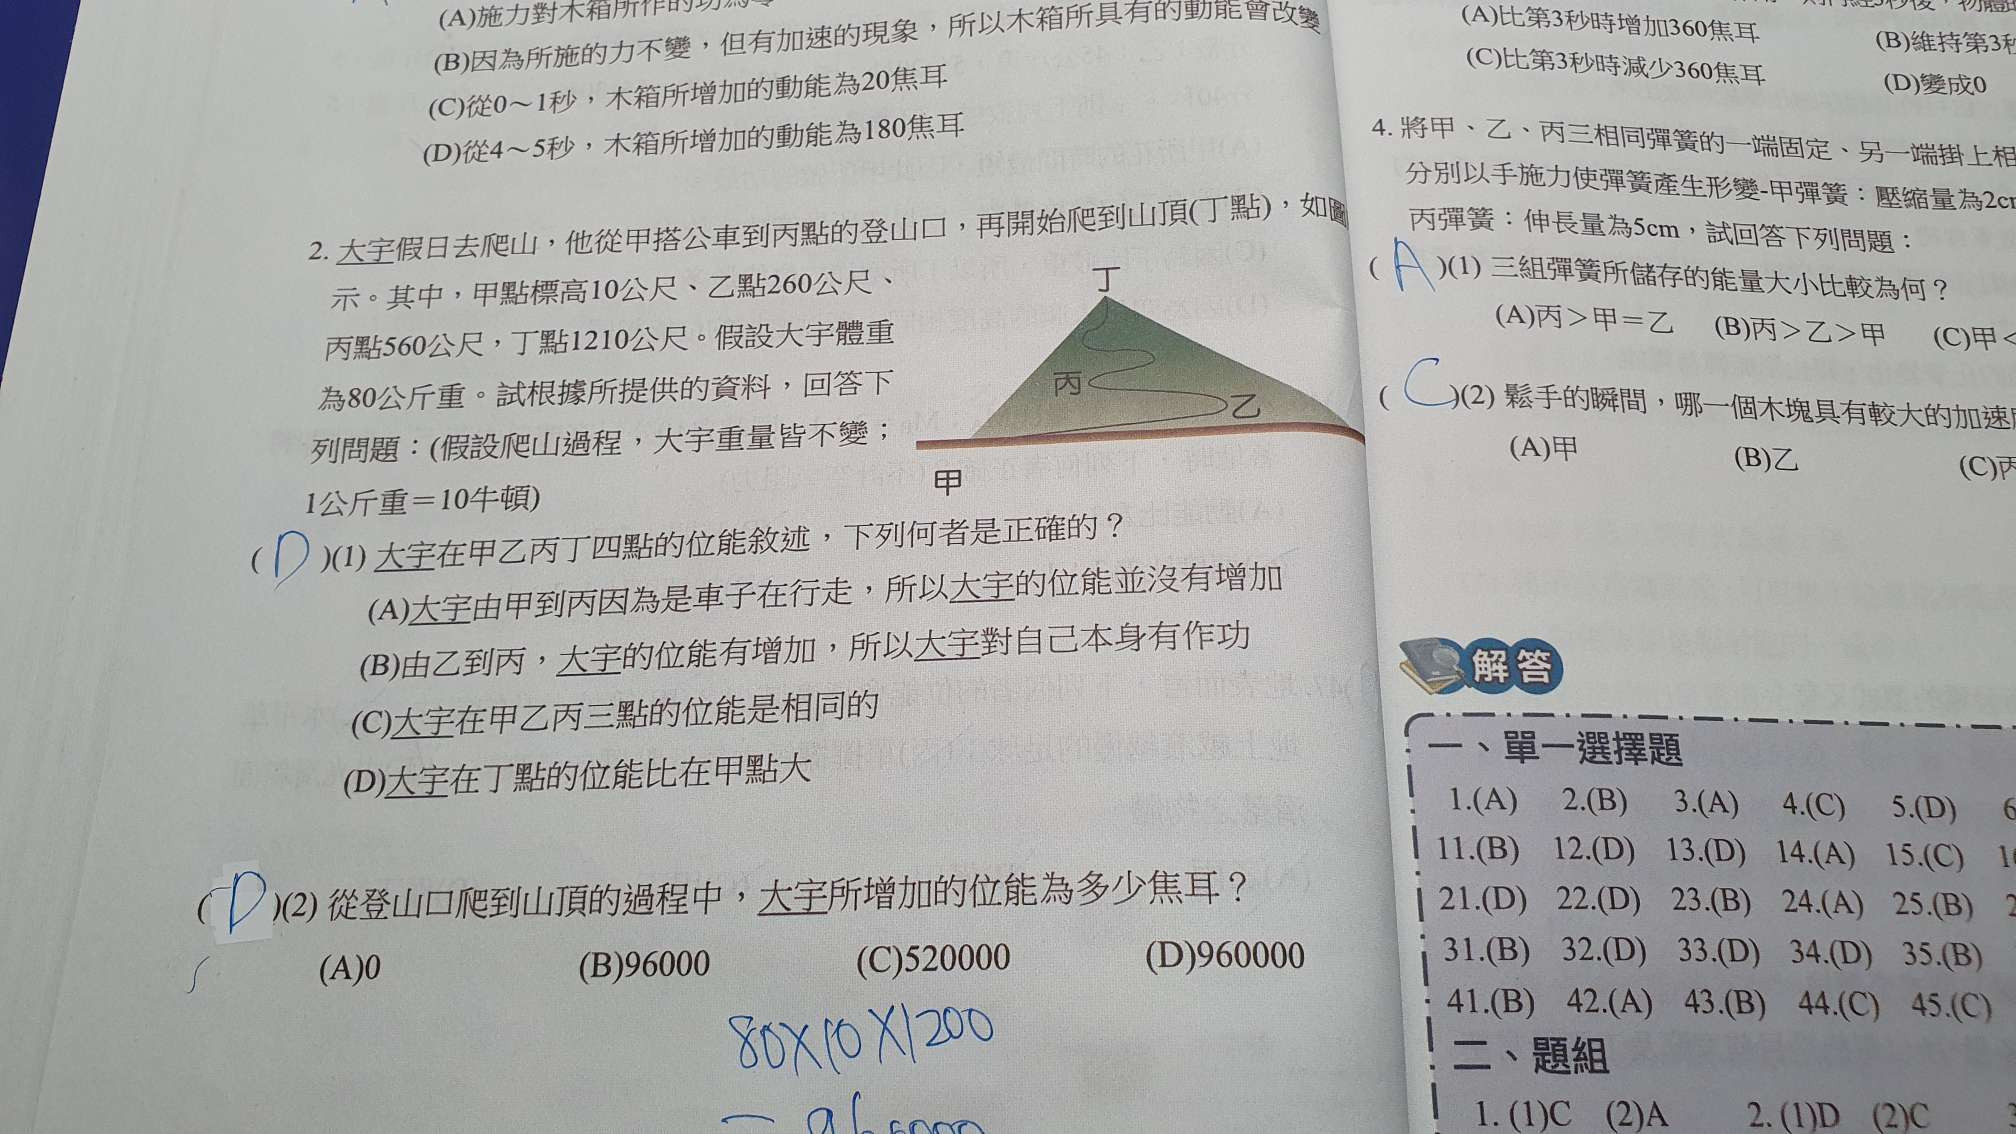 (A)施力對木箱所作的功為
(B)因為所施的力不變，但有加速的現象，所以木箱所具有的動能會改變
(C)從0～1秒，木箱所增加的動能為20焦耳
(D)從4～5秒，木箱所增加的動能為180焦耳
2. 大宇假日去爬山，他從甲搭公車到丙點的登山口，再開始爬到山頂(丁點)，如圖
示。其中，甲點標高10公尺、乙點260公尺、
丙點560公尺，丁點1210公尺。假設大宇體重
為80公斤重。試根據所提供的資料，回答下
列問題：(假設爬山過程，大宇重量皆不變；
1公斤重＝10牛頓)
丁
丙
乙
甲
( D )(1) 大宇在甲乙丙丁四點的位能敘述，下列何者是正確的？
(A)大宇由甲到丙因為是車子在行走，所以大宇的位能並沒有增加
(B)由乙到丙，大宇的位能有增加，所以大宇對自己本身有作功
(C)大宇在甲乙丙三點的位能是相同的
(D)大宇在丁點的位能比在甲點大
( D )(2) 從登山口爬到山頂的過程中，大宇所增加的位能為多少焦耳？
(A)0 (B)96000 (C)520000 (D)960000
80X10X1200
= 960000
(A)比第3秒時增加360焦耳 (B)維持第3秒
(C)比第3秒時減少360焦耳 (D)變成0
4. 將甲、乙、丙三相同彈簧的一端固定、另一端掛上相
分別以手施力使彈簧產生形變-甲彈簧：壓縮量為2cm
丙彈簧：伸長量為5cm，試回答下列問題：
( A )(1) 三組彈簧所儲存的能量大小比較為何？
(A)丙＞甲＝乙 (B)丙＞乙＞甲 (C)甲＜
( C )(2) 鬆手的瞬間，哪一個木塊具有較大的加速度
(A)甲 (B)乙 (C)丙
解答
一、單一選擇題
1.(A) 2.(B) 3.(A) 4.(C) 5.(D) 6
11.(B) 12.(D) 13.(D) 14.(A) 15.(C) 1
21.(D) 22.(D) 23.(B) 24.(A) 25.(B) 2
31.(B) 32.(D) 33.(D) 34.(D) 35.(B)
41.(B) 42.(A) 43.(B) 44.(C) 45.(C)
二、題組
1. (1)C (2)A 2. (1)D (2)C 3